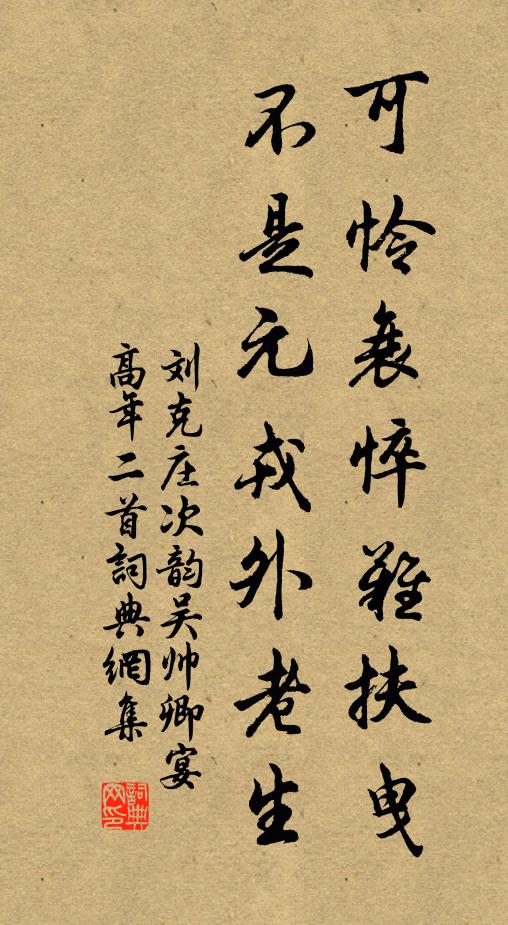 可怜衰悴难扶曳
不是元戎外老生
刘克庄次韵吴帅卿宴
高年二首詞典網集
詞典网印